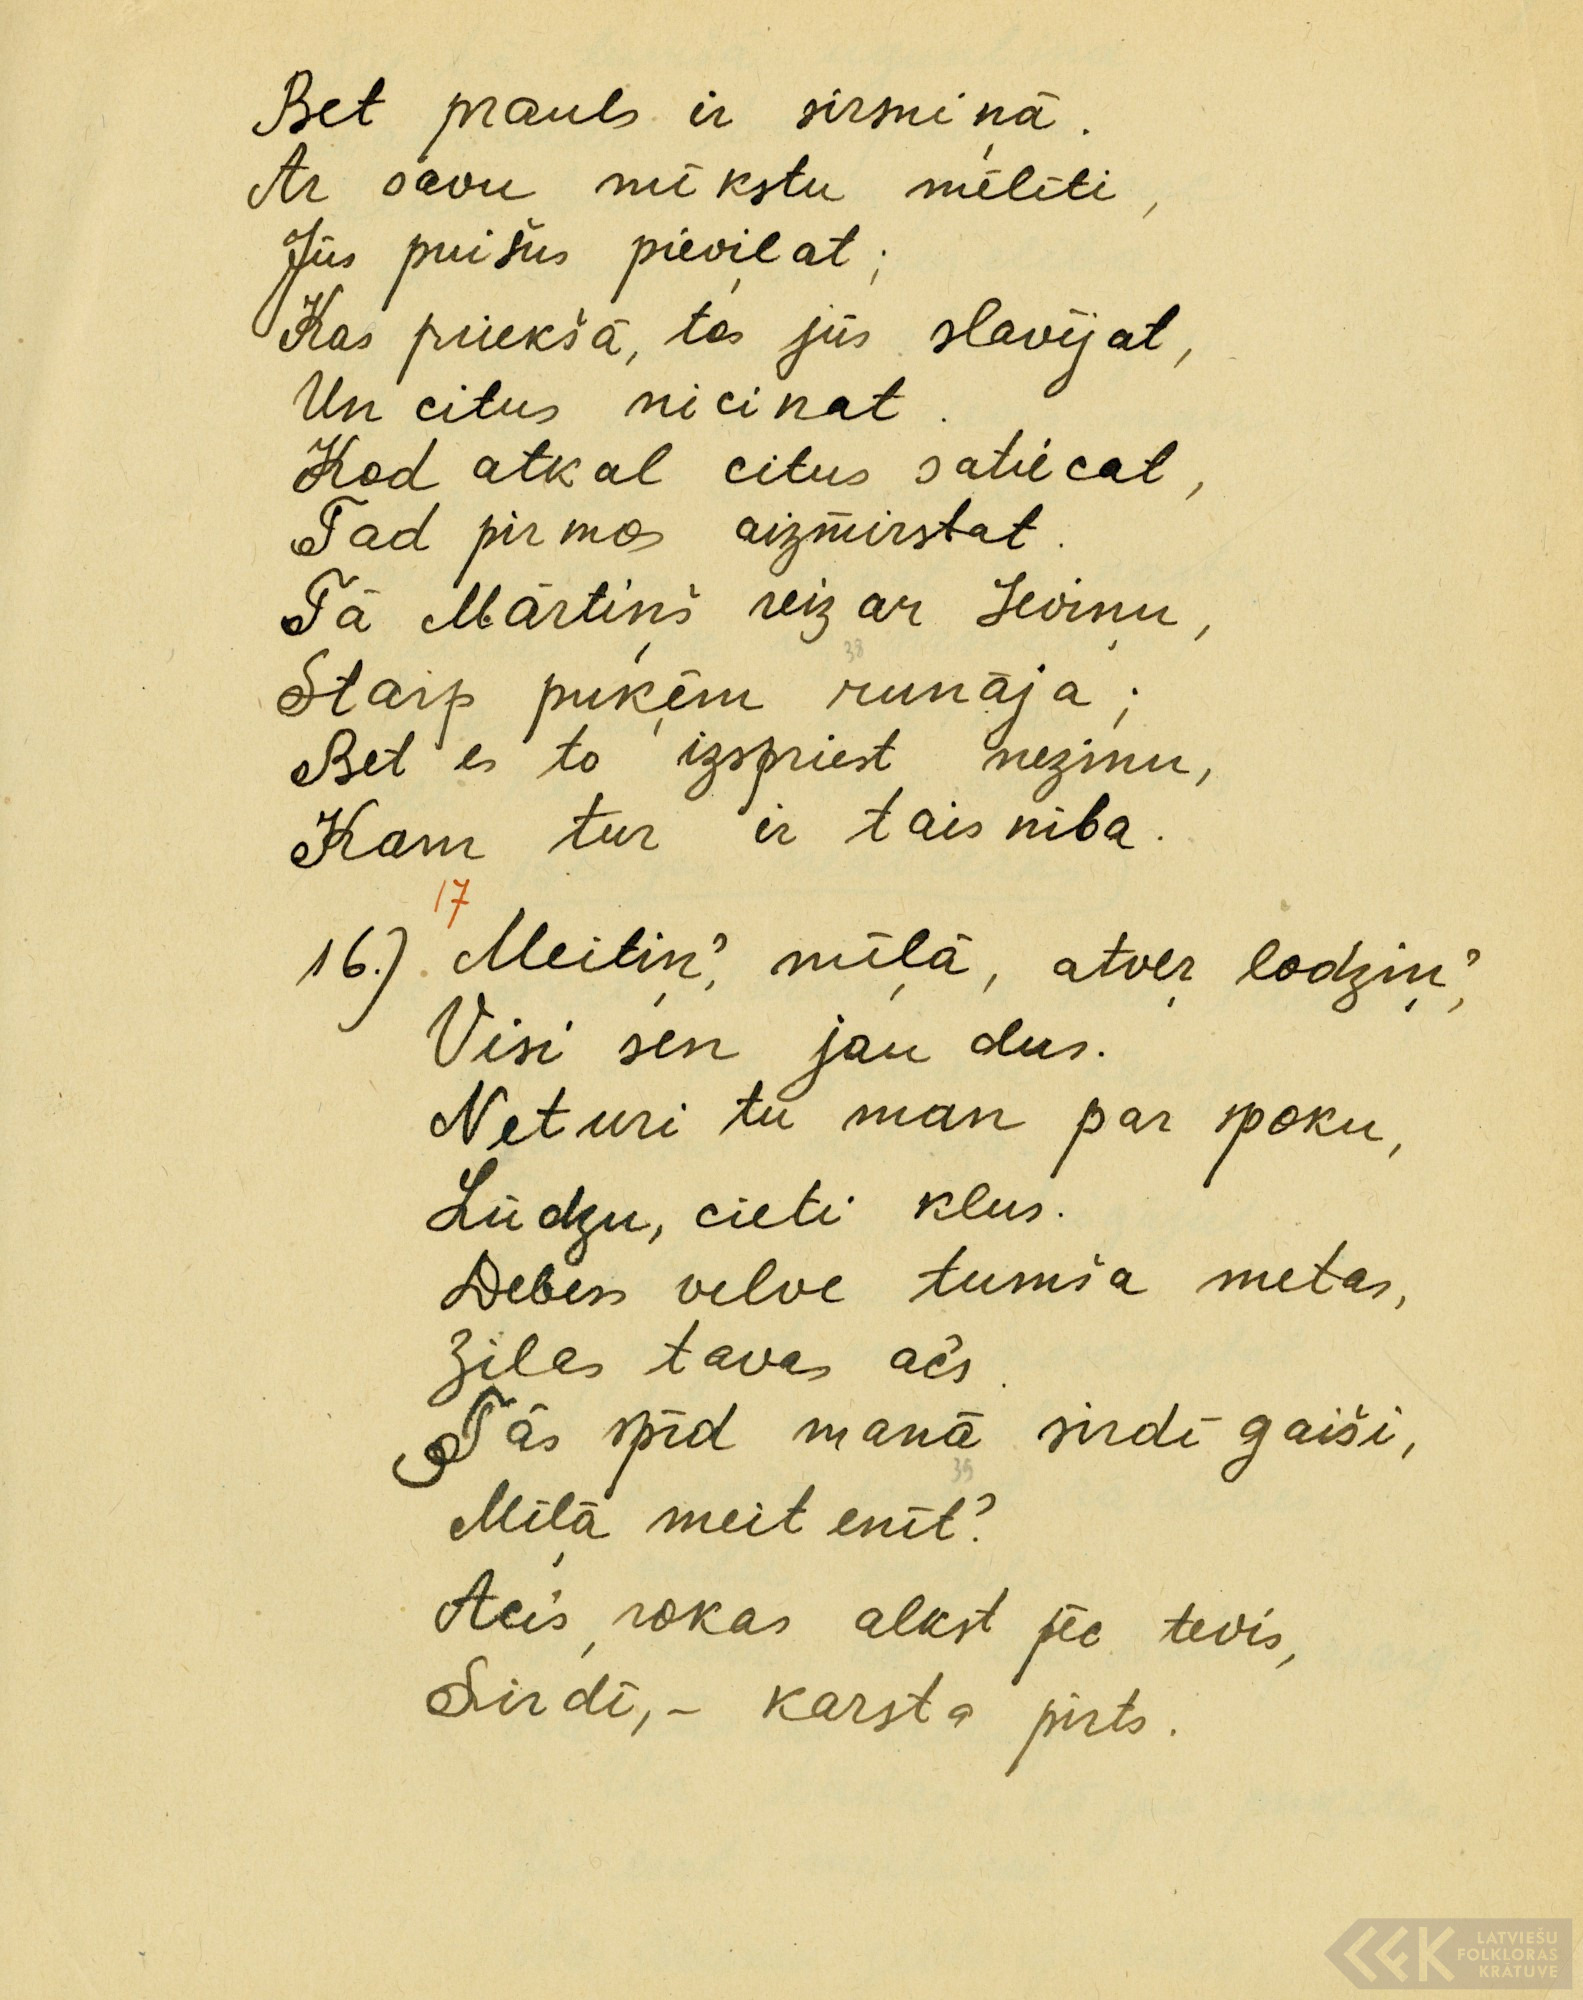 Bet prauls ir sirsniņā.
Ar savu mīkstu mēlīti,
Jūs puišus pieviļat;
Kas priekšā, tos jūs slavējat,
Un citus nicinat.
Kad atkal citus satiecat,
Tad pirmos aizmirstat.
Tā Mārtiņš reiz ar Ieviņu,
38
Starp puķēm runāja;
Bet es to izspriest nezinu,
Kam tur ir taisnība.
17
16.) Meitiņ', mīļā, atveŗ lodziņ',
Visi sen jau dus.
Neturi tu man par spoku,
Lūdzu, cieti klus.
Debess velve tumša metas,
Zilas tavas ačs.
Tās spīd manā sirdī gaiši,
39
Mīļā meitenīt'
Acis, rokas alkst pēc tevis,
Sirdī, – karsta pirts.
LATVIEŠU
FOLKLORAS
KRĀTUVE